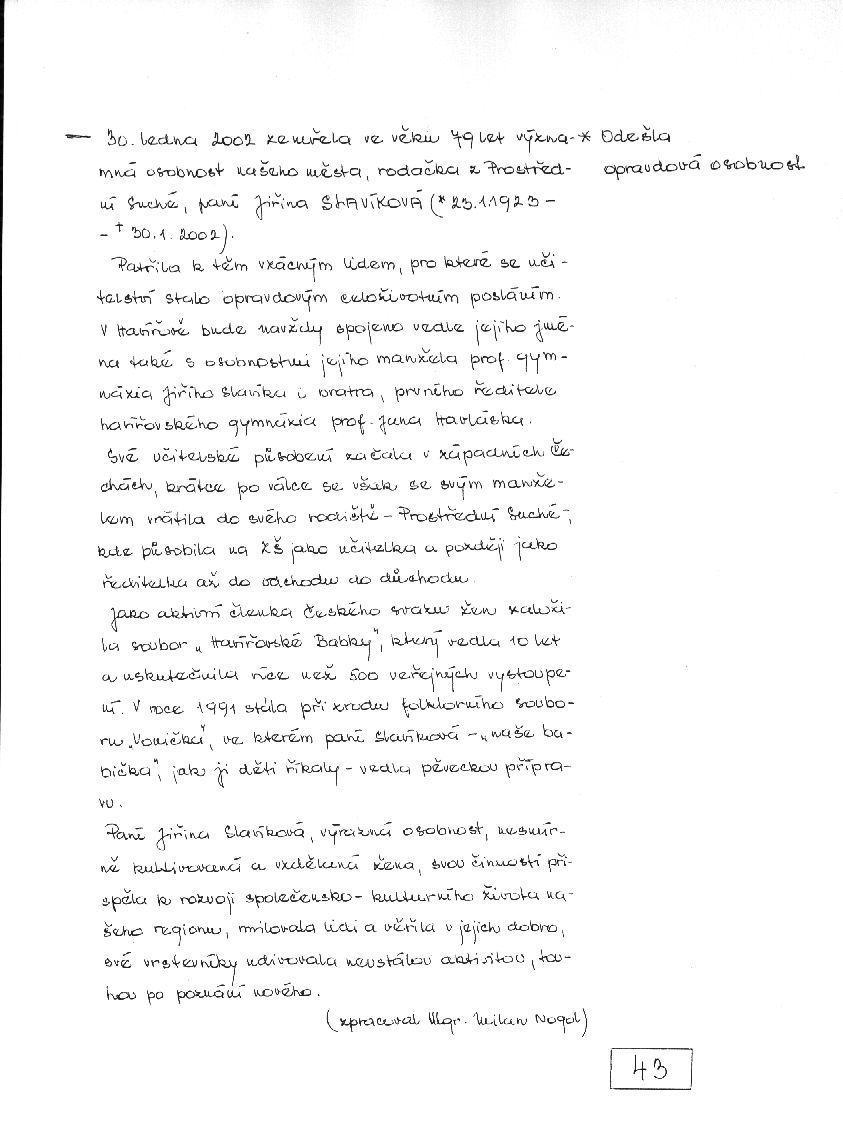 — 30. ledna 2002 zemřela ve věku 79 let význa- * Odešla
mná osobnost našeho města, rodačka z Prostřed- opravdová osobnost
ní Suché, paní Jiřina SLAVÍKOVÁ (* 23.1.1923 -
- † 30.1.2002).
Patřila k těm vzácným lidem, pro které se uči-
telství stalo opravdovým celoživotním posláním.
V Havířově bude navždy spojeno vedle jejího jmé-
na také s osobnostmi jejího manžela prof. gym-
názia Jiřího Slavíka i bratra, prvního ředitele
havířovského gymnázia prof. Jana Havláska.
Své učitelské působení začala v západních Če-
chách, krátce po válce se však se svým manže-
lem vrátila do svého rodiště - Prostřední Suché,
kde působila na ZŠ jako učitelka a později jako
ředitelka až do odchodu do důchodu.
Jako aktivní členka Českého svazu žen založi-
la soubor „Havířovské Babky", který vedla 10 let
a uskutečnila více než 500 veřejných vystoupe-
ní. V roce 1991 stála při zrodu folklorního soubo-
ru „Vonička", ve kterém paní Slavíková - „naše ba-
bička", jak ji děti říkaly - vedla pěveckou přípra-
vu.
Paní Jiřina Slavíková, výrazná osobnost, nesmír-
ně kultivovaná a vzdělaná žena, svou činností při-
spěla k rozvoji společensko - kulturního života na-
šeho regionu, milovala lidi a věřila v jejich dobro,
své vrstevníky udivovala neustálou aktivitou, tou-
hou po poznání nového.
(zpracoval Mgr. Milan Nogol)
43